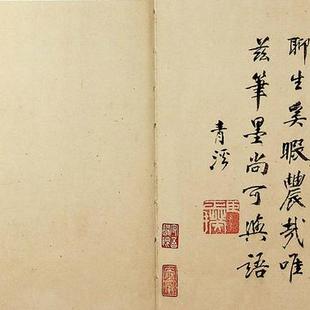 聊生奚暇農哉唯
茲筆墨尚可與語
青溪